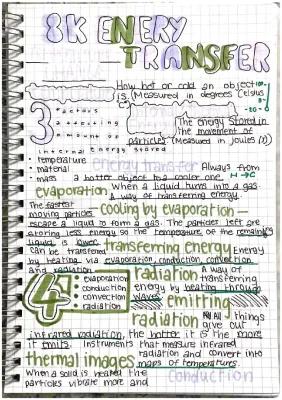 8K ENERY
TRANSFER
How hot or cold an object
is (Measured in degrees Celsius
3 factors
affecting
amount of
internal energy stored
The energy stored in
the movement of
particles (Measured in Joules (J)
• temperature
• material
• mass
energy transfer Always from
a hotter object to a cooler one H→C
evaporation When a liquid turns into a gas.
A way of transferring energy.
The fastest
moving particles cooling by evaporation—
escape a liquid to form a gas. The particles left are
storing less energy so the temperature of the remaining
liquid is lower transferring energy Energy
can be transferred
by heating, via evaporation, conduction, convection
and radiation
4 evaporation
conduction
convection
radiation
radiation A way of
transferring
energy by heating through
waves emitting
radiation All things
give out
infrared radiation, the hotter it is the more
it emits. Instruments that measure infrared
radiation and convert into
thermal images maps of temperatures.
When a solid is heated the
particles vibrate more and
conduction